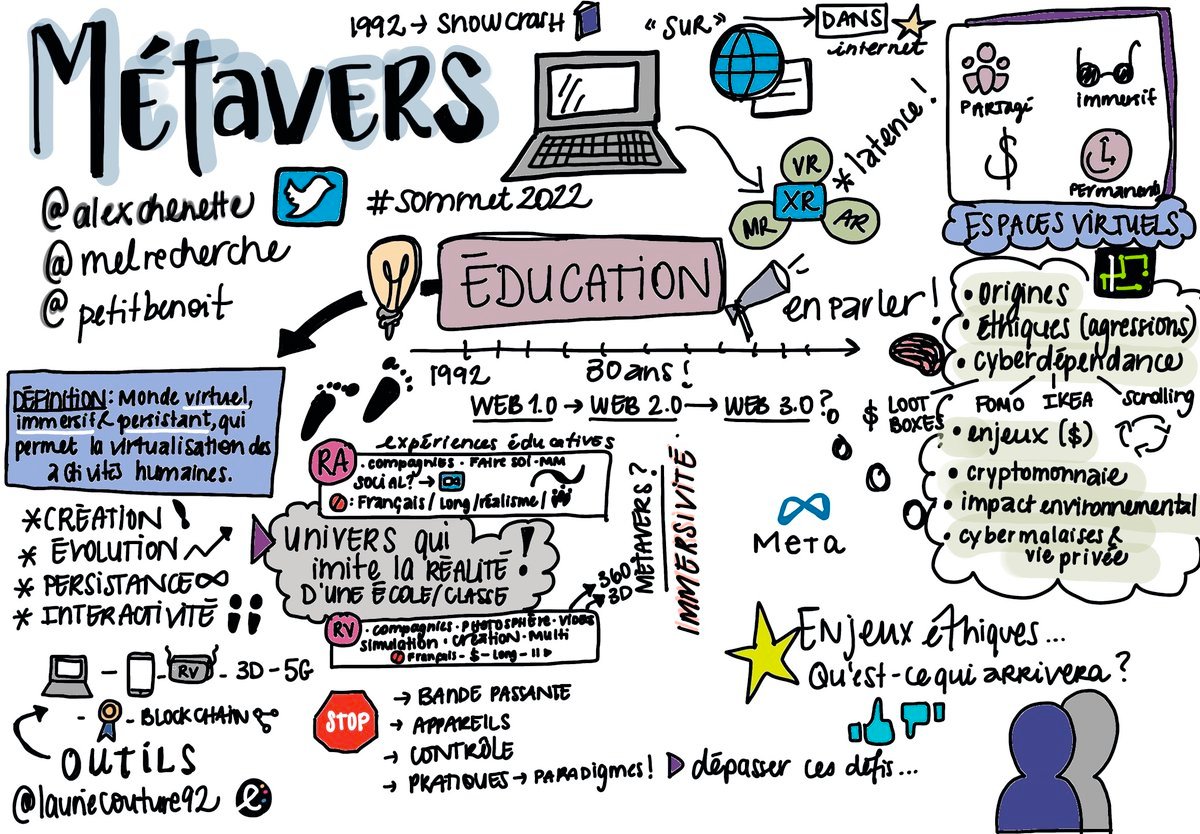 MÉTAVERS
1992 → SNOWCRASH
"SUR"
DANS
internet
@alexchenette
@melrecherche
@petitbenoit
#sommet2022
VR
XR
MR
AR
*latence!
PARTAGÉ
immersif
$
PERMANENTS
ESPACES VIRTUELS
ÉDUCATION
en parler!
1992
30ans!
WEB 1.0 → WEB 2.0 → WEB 3.0?
• origines
• éthiques (agressions)
• cyberdépendance
$ LOOT
BOXES
FOMO
IKEA
scrolling
• enjeux ($)
• cryptomonnaie
• impact environnemental
• cybermalaises &
vie privée
DÉFINITION: Monde virtuel,
immersif & persistant, qui
permet la virtualisation des
activités humaines.
*CRÉATION
* ÉVOLUTION
* PERSISTANCE ∞
* INTERACTIVITÉ
expériences éducatives
RA
• compagnies • FAIRE SOI-MM
SOCIAL? →
: Français / Long / réalisme /
UNIVERS qui
imite la RÉALITÉ
D'UNE ÉCOLE/CLASSE
!
RV
• compagnies • PHOTOSPHÈRE • VIDÉO
simulation • CRÉATION • Multi
Français - $ - Long -
360
3D
MÉTAVERS?
IMMERSIVITÉ
Meta
RV
3D - 5G
BLOCKCHAIN
OUTILS
@lauriecouture92
e
STOP
→ BANDE PASSANTE
→ APPAREILS
→ CONTRÔLE
→ PRATIQUES → PARADIGMES!
dépasser ces défis...
Enjeux éthiques...
Qu'est-ce qui arrivera?